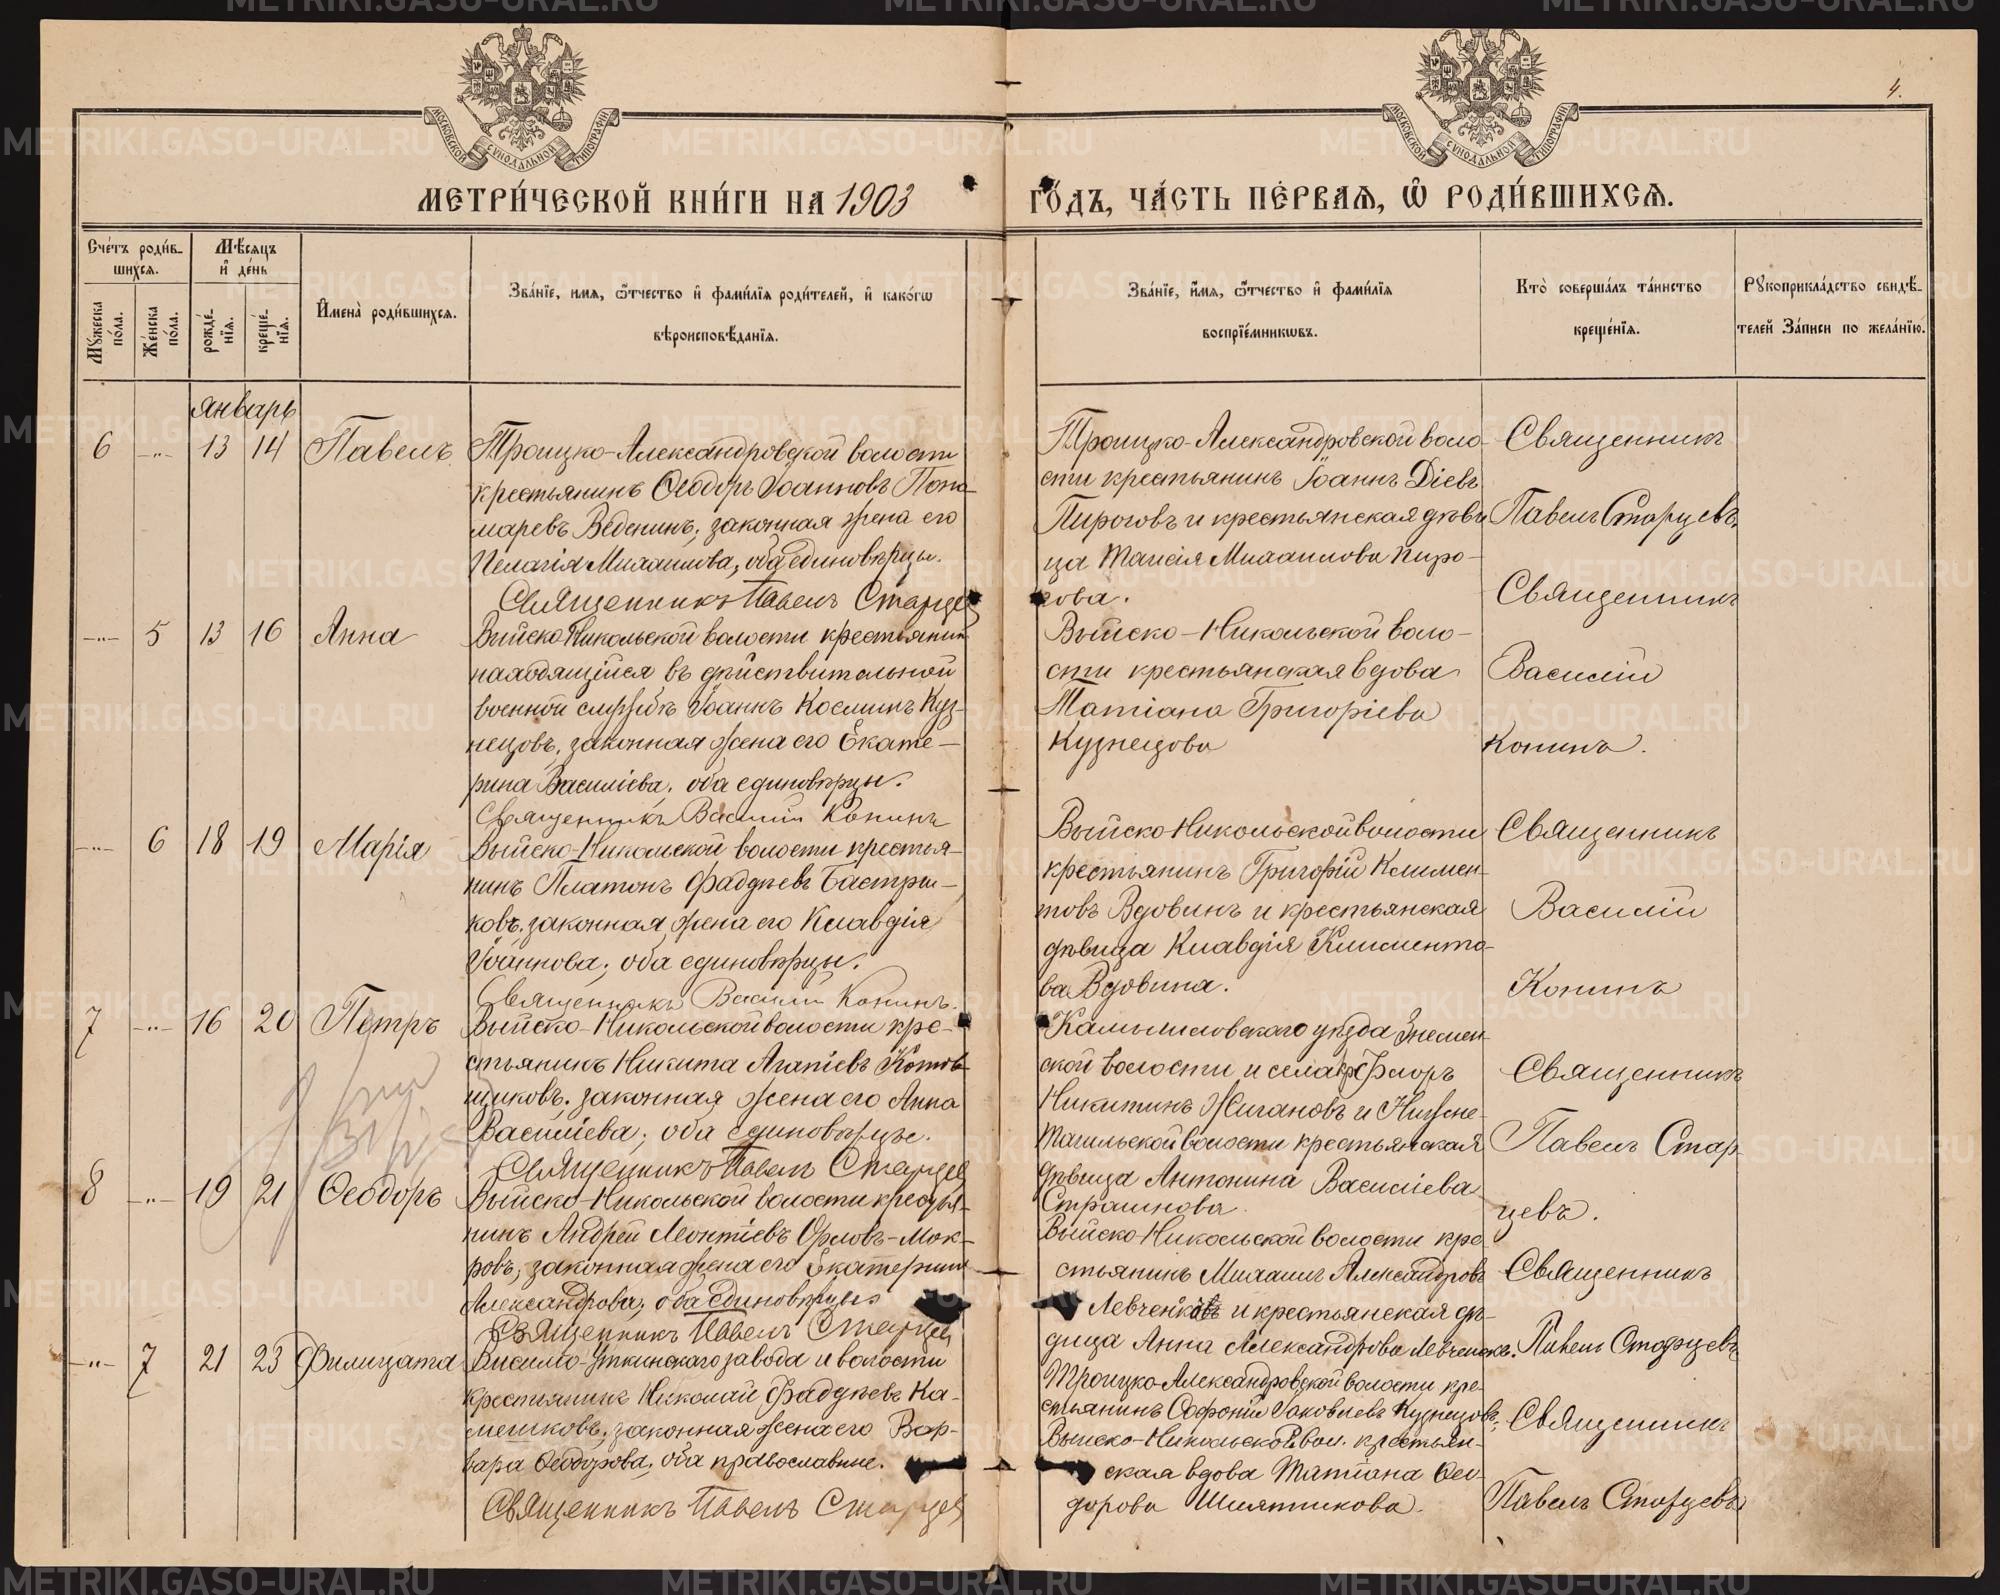 4.
МОСКОВСКОЙ СУНОДАЛЬНОЙ ТИПОГРАФІИ
МОСКОВСКОЙ СУНОДАЛЬНОЙ ТИПОГРАФІИ
МЕТРИ́ЧЕСКОЙ КНИ́ГИ НА 1903
ГО́ДЪ, ЧА́СТЬ ПЕ́РВАЯ, Ѡ РОДИ́ВШИХСЯ.
Сче́тъ роди́вшихся.
Мѣ́сяцъ и де́нь
Мꙋжеска по́ла.
Же́нска по́ла.
рожде́нія.
креще́нія.
Имена̀ роди́вшихся.
Зва́ніе, имя, ѻтчество и фами́лія роди́телей, и како́гѡ
вѣроисповѣ́данія.
Зва́ніе, имя, ѻтчество и фами́лія
воспріе́мникѡвъ.
Кто̀ соверша́лъ та́инство
креще́нія.
Рꙋкоприкла́дство свидѣ́-
телей за́писи по жела́нію.
Январь
6 -"- 13 14 Павелъ
Троицко-Александровской волости
крестьянинъ Ѳеодоръ Іоанновъ Поно-
маревъ Веденинъ, законная жена его
Пелагія Михаилова, оба единовѣрцы.
Священникъ Павелъ Старцев
Троицко-Александровской воло-
сти крестьянинъ Іоаннъ Діевъ
Пироговъ и крестьянская дѣви
ца Таисія Михаилова Пиро-
гова.
Священникъ
Павелъ Старцевъ.
-"- 5 13 16 Анна
Выйско-Никольской волости крестьянин
находящійся въ дѣйствительной
военной службѣ Іоаннъ Косминъ Куз-
нецовъ, законная жена его Екате-
рина Василіева, оба единовѣрцы.
Священникъ Василій Конинъ
Выйско-Никольской воло-
сти крестьянская вдова
Татіана Григоріева
Кузнецова
Священникъ
Василій
Конинъ.
-"- 6 18 19 Марія
Выйско-Никольской волости крестья-
нинъ Платонъ Фаддѣевъ Бастры-
ковъ, законная жена его Клавдія
Іоаннова, оба единовѣрцы.
Священникъ Василій Конинъ.
Выйско-Никольской волости
крестьянинъ Григорій Климен-
товъ Вдовинъ и крестьянская
дѣвица Клавдія Климентo-
ва Вдовина.
Священникъ
Василій
Конинъ
7 -"- 16 20 Петръ
Выйско-Никольской волости кре-
стьянинъ Никита Агапіевъ Котов-
щиковъ, законная жена его Анна
Василіева, оба единовѣрцы.
Священникъ Павелъ Старцев
Камышловскаго уѣзда Знамен-
ской волости и села Флоръ
Никитинъ Жигановъ и Нижне-
Тагильской волости крестьянская
дѣвица Антонина Василіева
Страшнова.
Священникъ
Павелъ Стар-
цевъ.
8 -"- 19 21 Ѳеодоръ
Выйско-Никольской волости крестья-
нинъ Андрей Леонтіевъ Орловъ-Мок-
ровъ, законная жена его Екатерина
Александрова, оба единовѣрцы
Священникъ Павелъ Старцев
Выйско-Никольской волости кре-
стьянинъ Михаилъ Александровъ
и крестьянская дѣ-
вица Анна Александрова
Священникъ
Павелъ Старцевъ
-"- 7 21 23 Филицата
Висимо-Уткинскаго завода и волости
крестьянинъ Николай Фаддѣевъ Ка-
мешковъ, законная жена его Вар-
вара Ѳеодорова, оба православные.
Священникъ Павелъ Старцев
Троицко-Александровской волости кре-
стьянинъ Софоній Іаковлевъ Кузнецовъ,
Выйско-Никольской вол. крестьян-
ская вдова Татіана Ѳео-
дорова Шляпникова.
Священникъ
Павелъ Старцевъ
METRIKI.GASO-URAL.RU